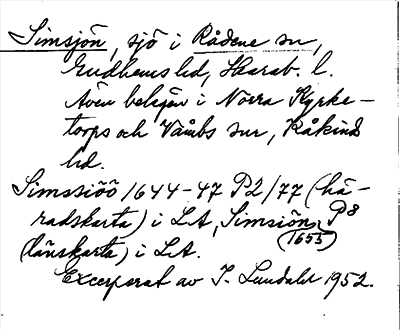 Simsjön, sjö i Rådene sn,
Gudhems hd, Skarab. l.
Även belägen i Norra Kyrke-
torps och Våmbs snr, Kåkinds
hd.
Simssiöö 1644-47 P2/77 (hä-
radskarta) i LA, Simsiön P8
(länskarta) (1655) i LA.
Excerperat av I. Lundahl 1952.